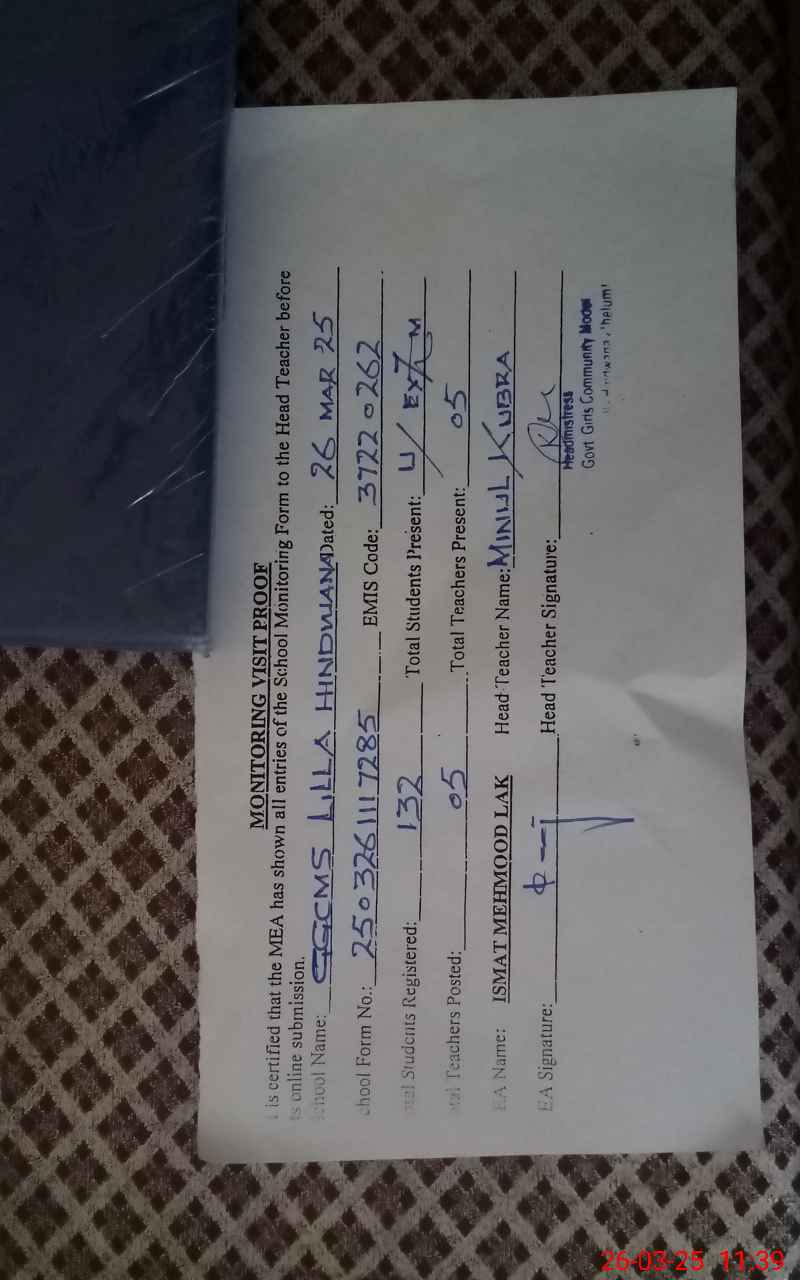 MONITORING VISIT PROOF
is certified that the MEA has shown all entries of the School Monitoring Form to the Head Teacher before
ts online submission.
School Name: GGCMS LILLA HINDWANA Dated: 26 MAR 25
chool Form No.: 2503261117285 EMIS Code: 37220262
tal Students Registered: 132 Total Students Present: U/EXAM
tal Teachers Posted: 05 Total Teachers Present: 05
EA Name: ISMAT MEHMOOD LAK Head Teacher Name: MINUL KUBRA
EA Signature: Head Teacher Signature:
Headmistress
Govt Girls Community Model
26-03-25 11:39